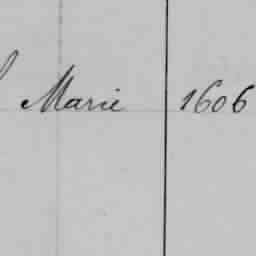 Marie 1606